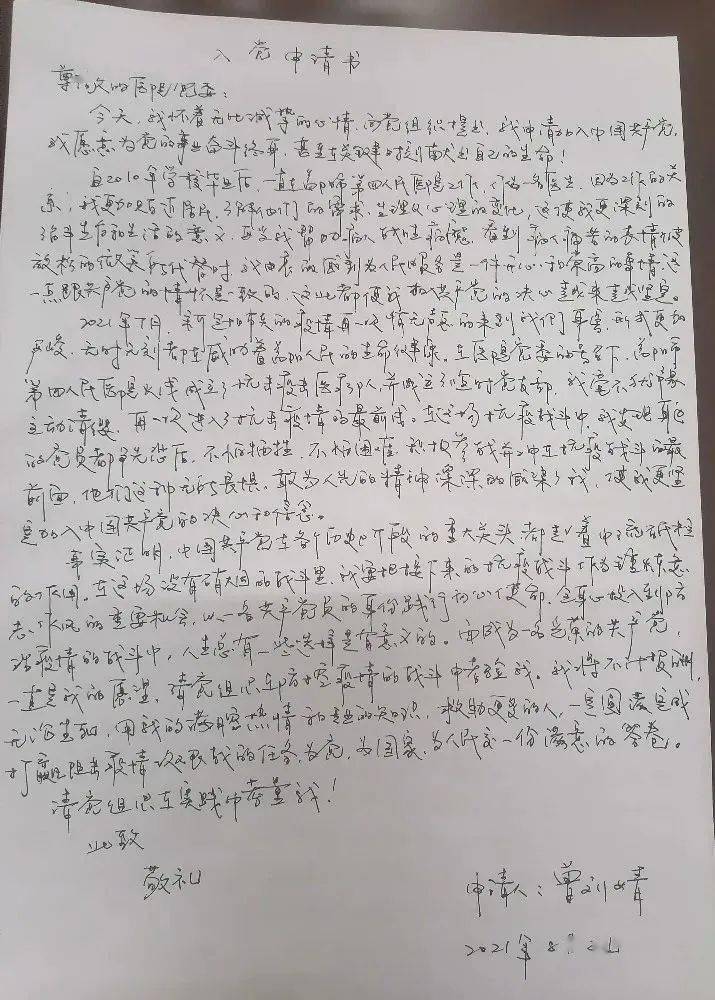 入党申请书
尊敬的医院党委：
今天，我怀着无比诚挚的心情，向党组织提出，我申请加入中国共产党，
我愿意为党的事业奋斗终身，甚至在关键时刻献出自己的生命！
自2010年学校毕业后，一直在 第四人民医院工作，作为一名医生，因为工作的关
系，我更加贴近居民，了解他们的需求、生理及心理的变化，这使我更深刻的
生命和生活的意义，每当我帮助病人战胜病魔，看到病人痛苦的表情被
放松的微笑所代替时，我由衷的感到为人民服务是一件开心和崇高的事情，这
一点跟共产党的情怀是一致的，这些都使我加入共产党的决心越来越坚定。
2021年7月，新冠肺炎的疫情再一次悄无声息的来到我们身旁，形式更加
严峻，无时无刻都在威胁着 人民的生命健康。在医院党委的号召下，
第四人民医院火线成立了抗击疫情医疗队，并成立了临时党支部，我毫不犹豫
主动请缨，再一次进入了抗击疫情的最前线。在这场抗疫战斗中，我发现身边
的党员都争先恐后，不怕牺牲，不怕困难，积极参战并冲在抗疫战斗的最
前面，他们这种无所畏惧、敢为人先的精神深深的感染了我，使我更坚
定加入中国共产党的决心和信念。
事实证明，中国共产党在各个历史阶段的重大关头都起着中流砥柱
的作用。在这场没有硝烟的战斗里，我要把接下来的抗疫战斗作为
的重要机会，以一名共产党员的身份践行初心使命，全身心投入到防
治疫情的战斗中，人生总有一些选择是有意义的。而成为一名光荣的共产党，
一直是我的愿望，请党组织在防控疫情的战斗中考验我。我将不计报酬，
无论生死，用我的满腔热情和专业的知识，救助更多的人，一定圆满完成
打赢阻击疫情 战的任务，为党、为国家、为人民交一份满意的答卷。
请党组织在实践中考量我！
此致
敬礼
申请人：曾
2021年8